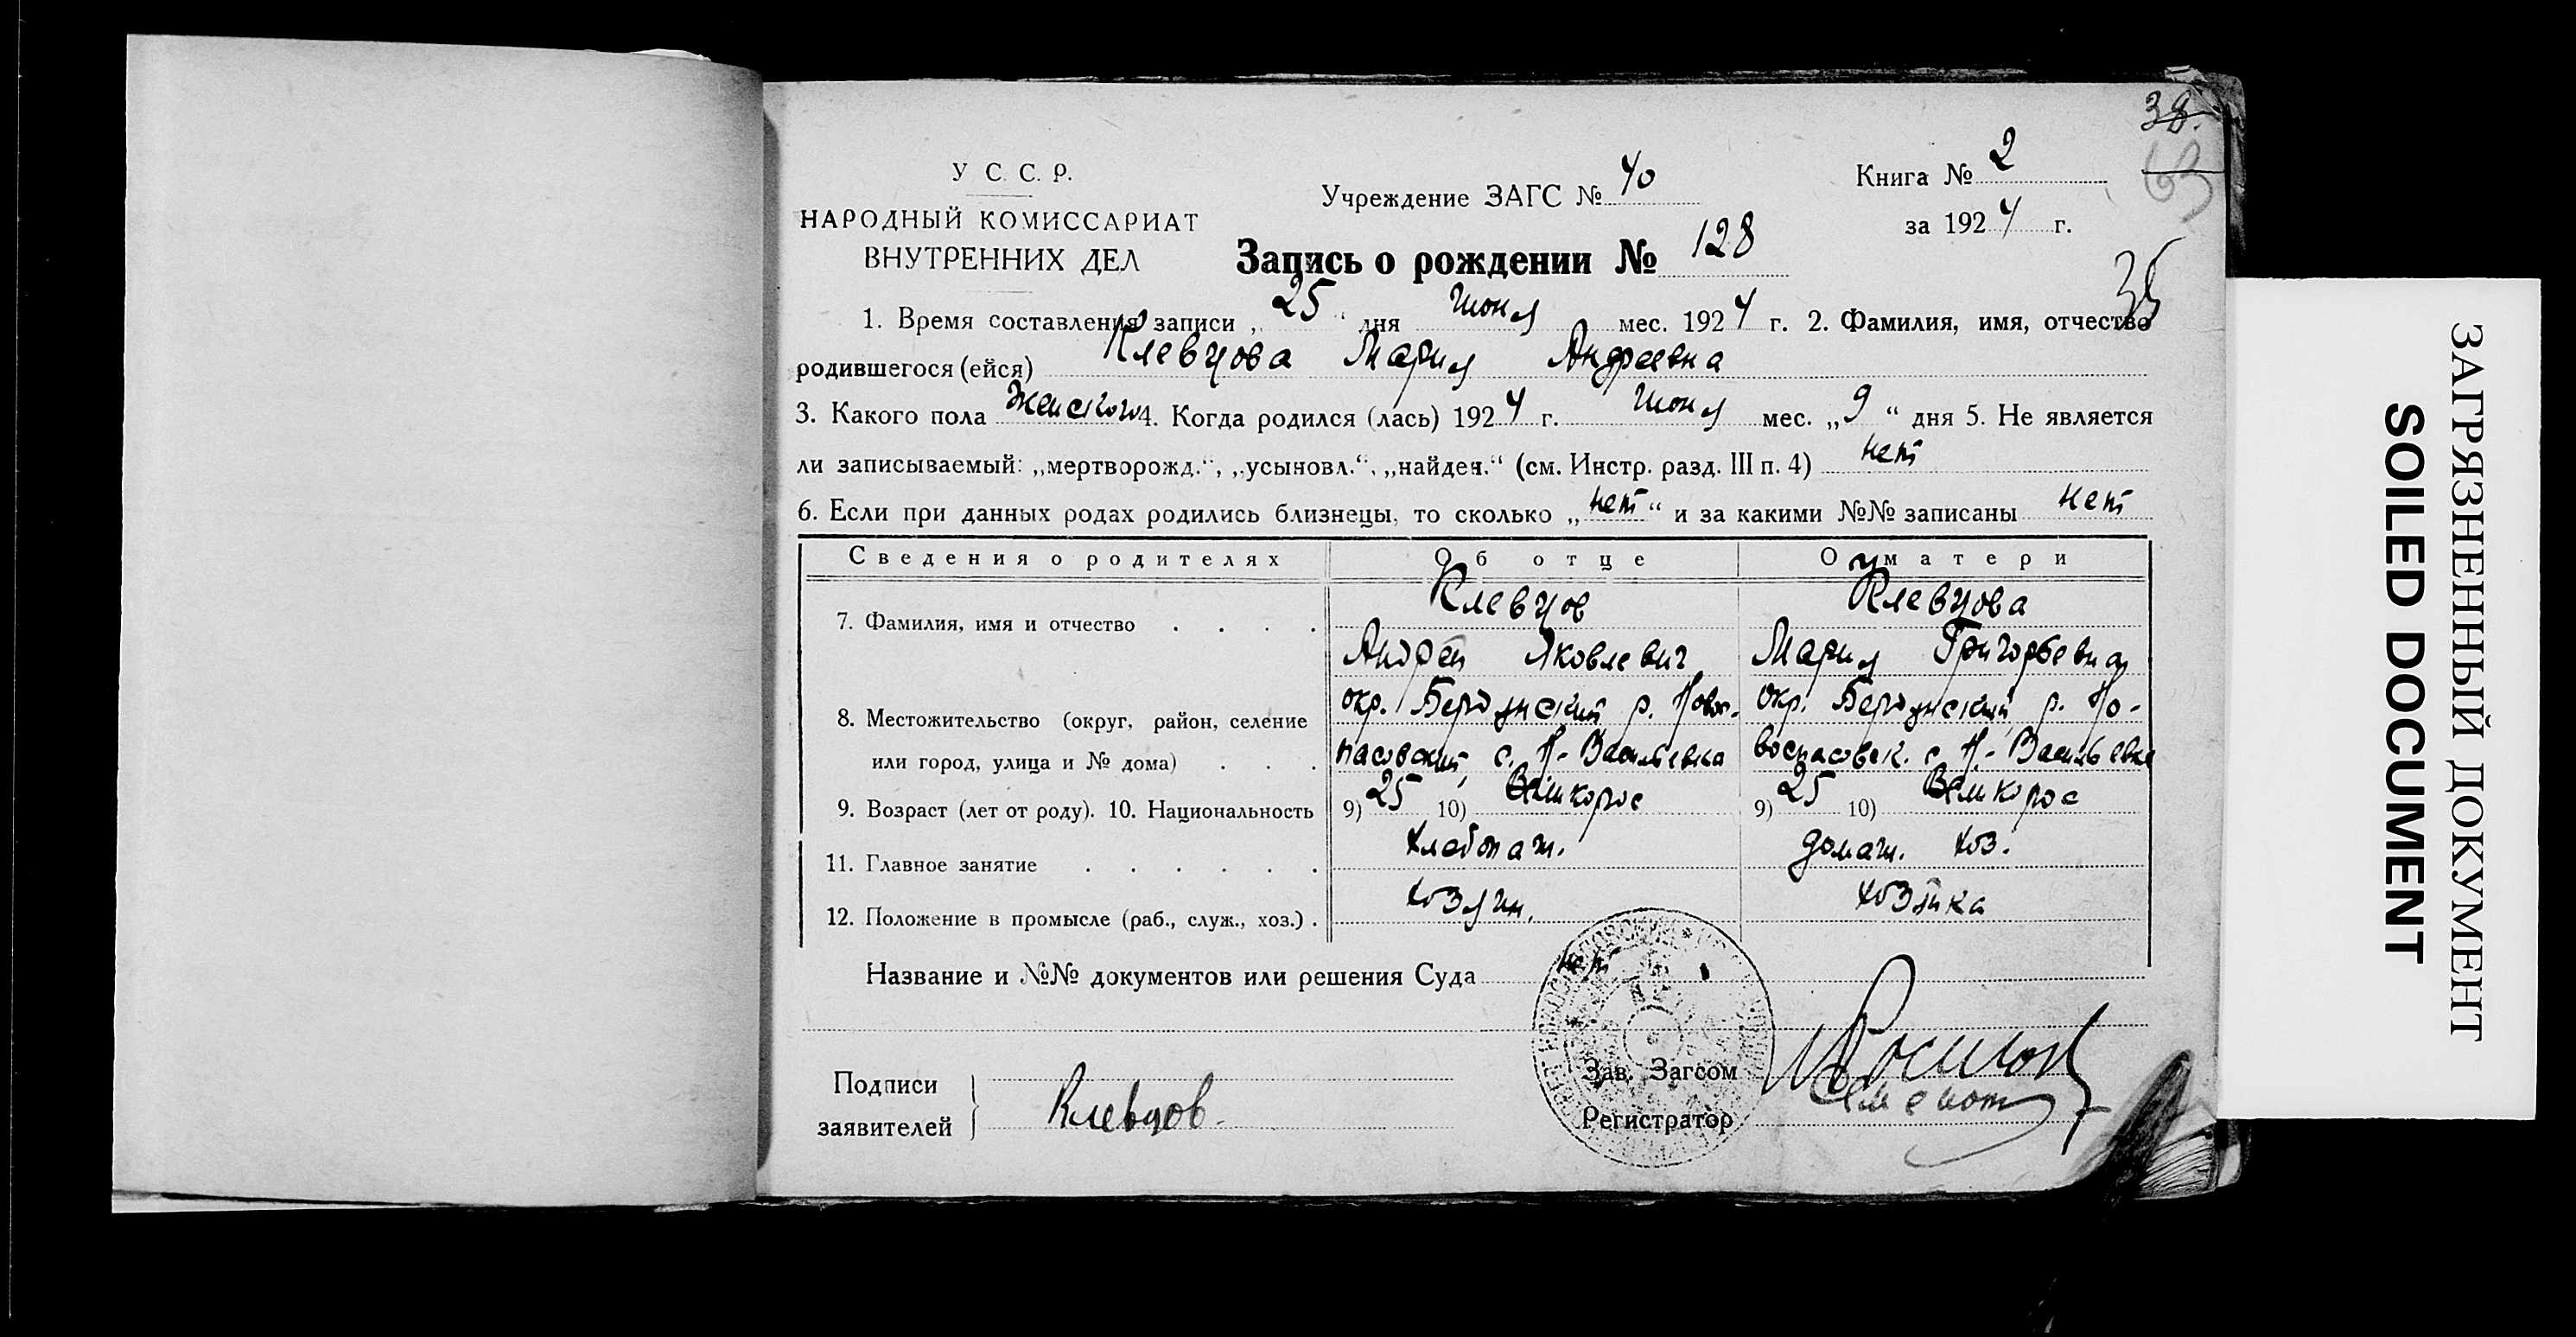 38.
63
У С. С. Р.
НАРОДНЫЙ КОМИССАРИАТ
ВНУТРЕННИХ ДЕЛ
Учреждение ЗАГС № 40
Книга № 2
за 1924 г.
Запись о рождении № 128
35
1. Время составления записи „ 25 “ дня Июня мес. 1924 г. 2. Фамилия, имя, отчество
родившегося (ейся) Клевцова Мария Андреевна
3. Какого пола Женского 4. Когда родился (лась) 1924 г. Июня мес. „ 9 “ дня 5. Не является
ли записываемый: „мертворожд.“, „усыновл.“, „найден.“ (см. Инстр. разд. III п. 4) нет
6. Если при данных родах родились близнецы, то сколько „ нет “ и за какими №№ записаны нет
Сведения о родителях Об отце О матери
7. Фамилия, имя и отчество . . . . Клевцов Клевцова
Андрей Яковлевич Мария Григорьевна
8. Местожительство (округ, район, селение окр. Бердянский р. Новос- окр. Бердянский р. Но-
или город, улица и № дома) . . . пасовский, с. Н-Васильевка воспасовск. с. Н-Васильевка
9. Возраст (лет от роду). 10. Национальность 9) 25 10) Великорос 9) 25 10) Великорос
11. Главное занятие . . . . . . хлебопаш. домаш. хоз.
12. Положение в промысле (раб., служ., хоз.) . хозяин. хозяйка
Название и №№ документов или решения Суда нет
Подписи
заявителей
Клевцов.
Зав. Загсом
Регистратор
ЗАГРЯЗНЕННЫЙ ДОКУМЕНТ
SOILED DOCUMENT